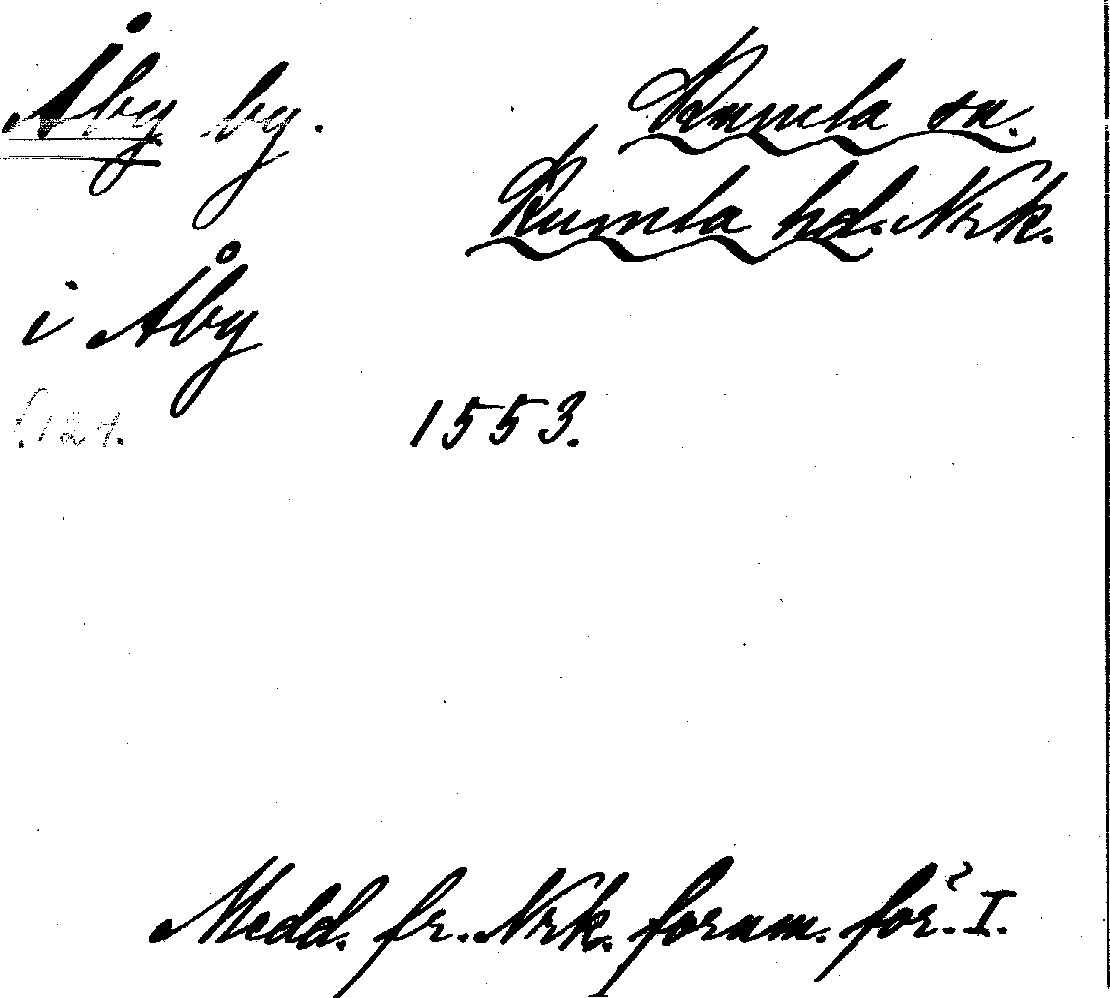 Åby by.
Kumla sn.
Kumla hd. Nrk.
i Åby
s. 124. 1553.
Medd. fr. Nrk. fornm. för. I.